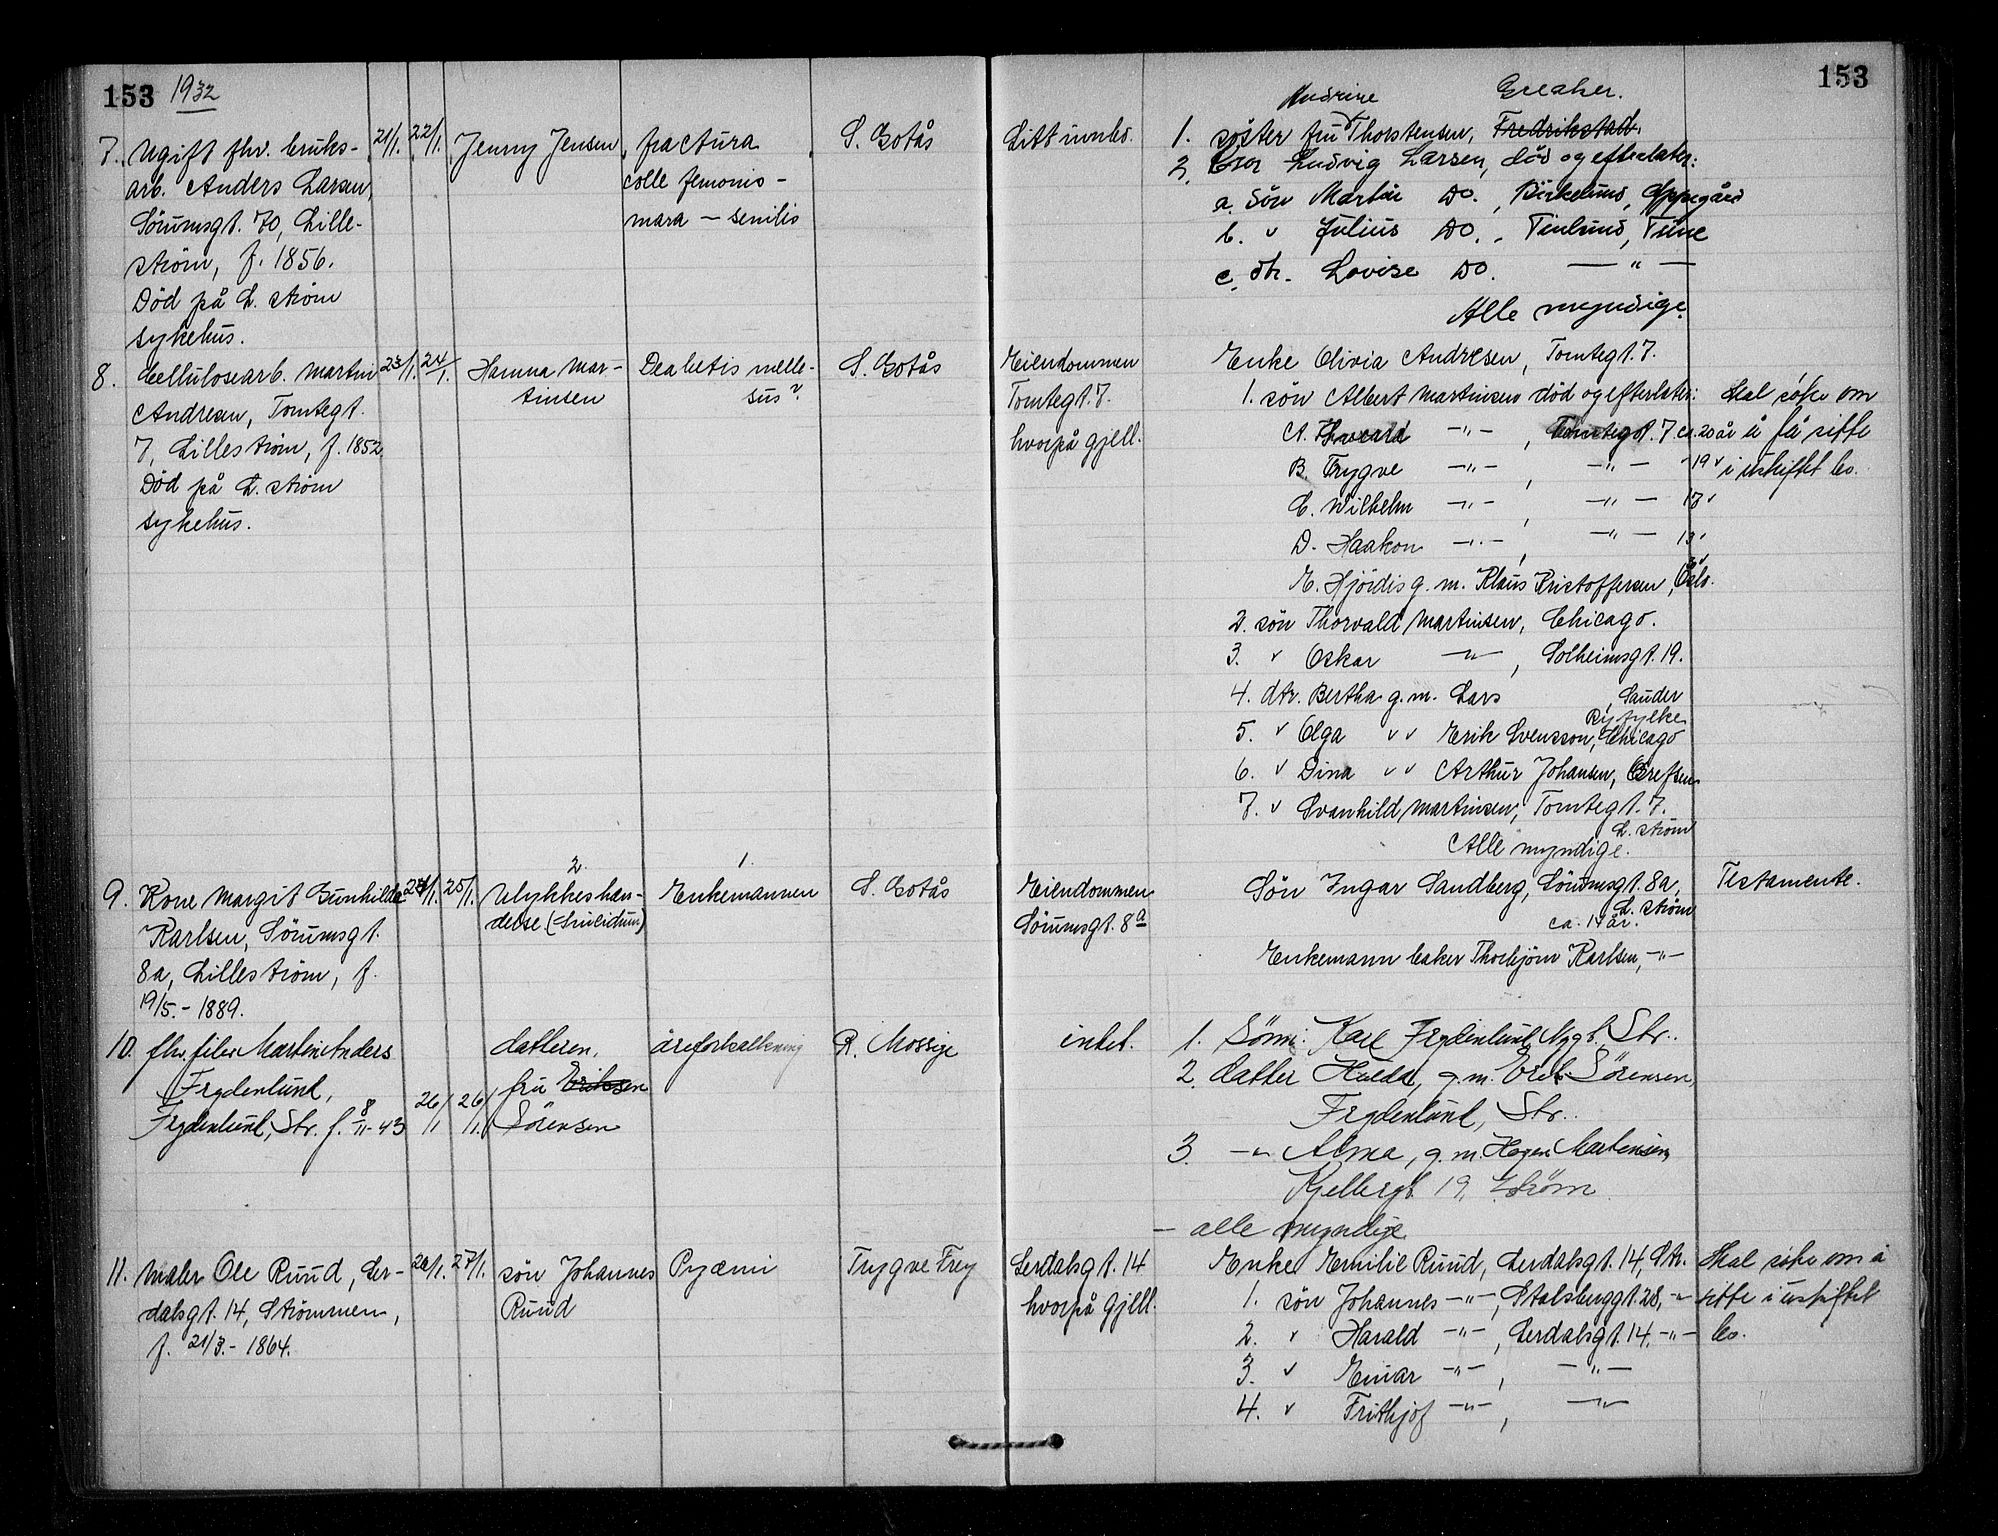 153 1932
7. Ugift fhv. bruks-
arb. Anders Larsen,
Sörumsgt. 70, Lille-
ström, f. 1856.
Död på L. ström
sykehus.
21/1. 22/1.
Jenny Jensen
fractura
colle femoris -
mara - senilis
S. Gotås
8. Cellulosearb. Martin
Andresen, Tomtegt.
7, Lilleström, f. 1852.
Död på L. ström
sykehus.
23/1. 24/1.
Hanna Mar-
tinsen
Deabetis melle-
sus?
S. Gotås
9. Kone Margit Gunhilda
Karlsen, Sörumsgt.
8a, Lilleström, f.
19/5. - 1889.
24/1. 25/1.
2.
Ulykkeshen-
delse (Suicidum)
1.
Enkemannen
S. Gotås
10. fhv. filer Martin Anders
Frydenlund,
Frydenlund, Str. f. 8/11-43
26/1 26/1.
datteren,
fru Eriksen
Sörensen
åreforkalkning
R. Mossige
11. Maler Ole Ruud, Ler-
dalsgt. 14, Strömmen,
f. 21/3. - 1864.
27/1.
sön Johannes
Ruud
Pyæmi
Trygve Frey
153
Litt innbo.
Andrine Greaker.
1. söster fru Thorstensen, Fredrikstad.
2. bror Ludvig Larsen, död og efterlater:
a. sön Martin Do., Birkelund, Oppegård
b. " Julius Do., Tindlund, Tune
c. dtr. Lovise Do. — " —
Alle myndige.
Eiendommen
Tomtegt. 7.
hvorpå gjell.
Enke Olivia Andresen, Tomtegt. 7.
1. sön Albert Martinsen död og efterlater:
A. —"—, Tomtegt. 7 ca. 20 år
B. Trygve —"—, —"— - 19 "
C. Wilhelm —"—, —"— 17 "
D. Haakon —"—, —"— 13 "
E. Hjördis g. m. Klaus Kristoffersen, Oslo.
2. sön Thorvald Martinsen, Chicago.
3. " Oskar —"—, Solheimsgt. 19.
4. dtr. Bertha g. m. Lars , Sauder
Ryfylke
5. " Olga " " Erik Svensson, Chicago
6. " Dina " " Arthur Johansen, Grefsen
7. " Svanhild Martinsen, Tomtegt. 7.
L. ström
Alle myndige.
Skal söke om
å få sitte
i uskiftet bo.
Eiendommen
Sörumsgt. 8a
Sön Ingar Sandberg, Sörumsgt. 8a,
L. ström
ca. 14 år.
Enkemann baker Thorbjörn Karlsen, —"—
Testamente.
intet.
1. Sönn: Karl Frydenlund, Nygt., Str..
2. datter Hulda, g. m. Sörensen,
Frydenlund, Str..
3. —"— Alma, g. m. Martinsen,
Kjellergt. 19, L.ström
— alle myndige
Lerdalsgt. 14
hvorpå gjell.
Enke Emilie Ruud, Lerdalsgt. 14, Str.
1. sön Johannes —"—, Stalsberggt. 28, —"—
2. " Harald —"—, Lerdalsgt. 14, —"—
3. " Einar —"—, —"—
4. " Frithjof —"—, —"—
Skal söke om å
sitte i uskiftet
bo.